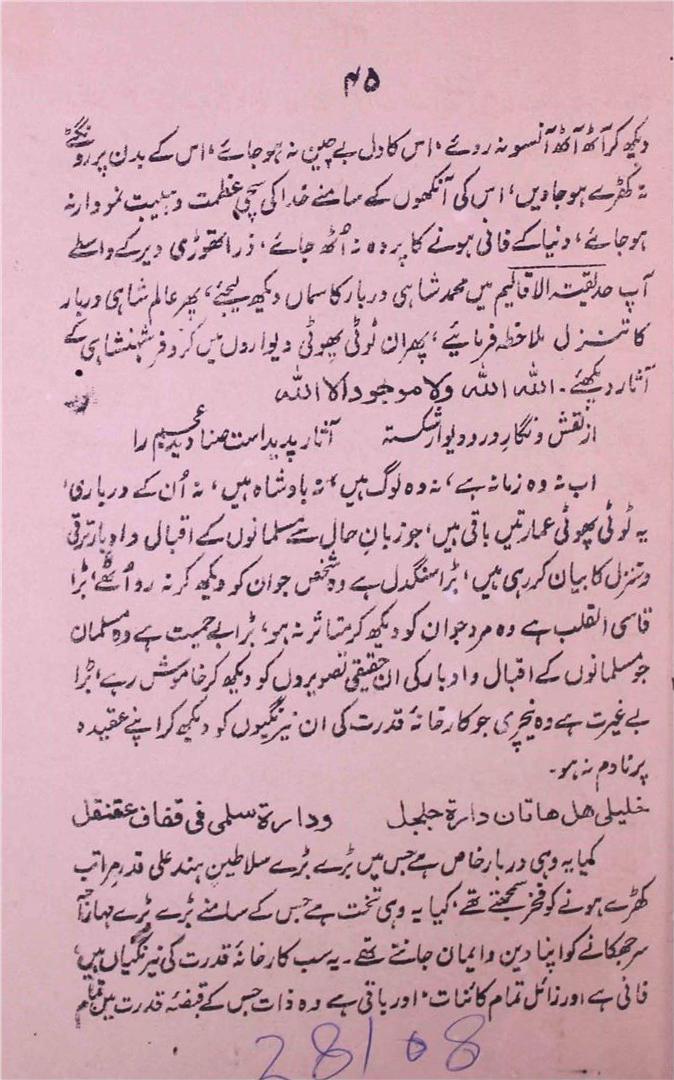 ۴۵
دیکھ کر آٹھ آٹھ آنسو نہ روئے، اس کا دل بے چین نہ ہو جائے، اس کے بدن پر رونگٹے
نہ کھڑے ہو جاویں، اس کی آنکھوں کے سامنے خدا کی سچی عظمت و ہیبت نمودار نہ
ہو جائے، دنیا کے فانی ہونے کا پردہ نہ اُٹھ جائے، ذرا تھوڑی دیر کے واسطے
آپ حدیقۃ الاقالیم میں محمد شاہی دربار کا سماں دیکھ لیجئے، پھر عالم شاہی دربار
کا تنزل ملاحظہ فرمائیے، پھر ان ٹوٹی پھوٹی دیواروں میں کروفر شہنشاہی کے
آثار دیکھئے۔ الله الله ولا موجود الا الله
از نقش و نگارِ در و دیوار شکستہ آثار پدید است صنادید عجم را
اب نہ وہ زمانہ ہے، نہ وہ لوگ ہیں، نہ بادشاہ ہیں، نہ اُن کے درباری،
یہ ٹوٹی پھوٹی عمارتیں باقی ہیں، جو زبانِ حال سے مسلمانوں کے اقبال و ادبار ترقی
و تنزل کا بیان کر رہی ہیں، بڑا سنگدل ہے وہ شخص جو ان کو دیکھ کر نہ رو اُٹھے، بڑا
قاسی القلب ہے وہ مرد جو ان کو دیکھ کر متاثر نہ ہو، بڑا بے حمیت ہے وہ مسلمان
جو مسلمانوں کے اقبال و ادبار کی ان حقیقی تصویروں کو دیکھ کر خاموش رہے، بڑا
بے غیرت ہے وہ نیچری جو کارخانۂ قدرت کی ان نیرنگیوں کو دیکھ کر اپنے عقیدہ
پر نادم نہ ہو۔
خلیلی هل هاتان دارة جلجل ودارة سلمی فی قفاف عقنقل
کیا یہ وہی دربار خاص ہے جس میں بڑے بڑے سلاطینِ ہند علی قدر مراتب
کھڑے ہونے کو فخر سمجھتے تھے، کیا یہ وہی تخت ہے جس کے سامنے بڑے بڑے مہاراجہ
سر جھکانے کو اپنا دین و ایمان جانتے تھے۔ یہ سب کارخانۂ قدرت کی نیرنگیاں ہیں،
فانی ہے اور زائل تمام کائنات، اور باقی ہے وہ ذات جس کے قبضۂ قدرت میں تمام
28108